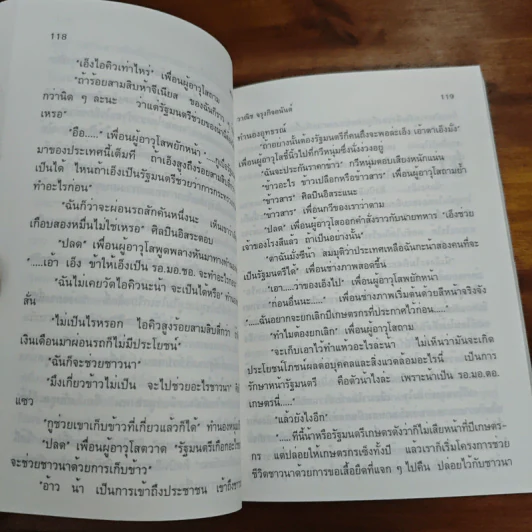 118
"เอ็งไอคิวเท่าไหร่" เพื่อนผู้อาวุโสถาม
"ถ้าร้อยสามสิบห้าจีเนียส ของฉันก็ราว
กว่านิด ๆ ละนะ ว่าแต่รัฐมนตรีช่วยของน้า
เหรอ"
"อือ....." เพื่อนผู้อาวุโสพยักหน้า
มาของประเทศนี้เต็มที ถ้าเอ็งสูงถึงร้อยสามสิบ
เป็นได้ ไหนถ้าเอ็งเป็นรัฐมนตรีช่วยว่าการกระทรวง
ทำอะไรก่อน"
"ฉันก็ว่าจะผ่อนรถสักคันหนึ่งนะ
เกือบสองหมื่นไม่ใช่เหรอ" ศิลปินอิสระตอบ
"ปลด" เพื่อนผู้อาวุโสพูดพลางหันมาทาง
".....เอ้า เอ็ง ข้าให้เอ็งเป็น รอ.มอ.ชอ. จะทำอะไร
"ฉันไม่เคยวัดไอคิวนะน้า จะเป็นได้หรือ"
สั่น
"ไม่เป็นไรหรอก ไอคิวสูงร้อยสามสิบสี่กว่า
เงินเดือนมาผ่อนรถก็ไม่มีประโยชน์"
"ฉันก็จะช่วยชาวนา"
"มึงเกี่ยวข้าวไม่เป็น จะไปช่วยอะไรชาวนา"
แซว
"กูช่วยเขาเก็บข้าวที่เกี่ยวแล้วก็ได้"
"ปลด" เพื่อนผู้อาวุโสตวาด "รัฐมนตรีเกือกอะไร
จะช่วยชาวนาด้วยการเก็บข้าว"
"อ้าว น้า เป็นการเข้าถึงประชาชน เข้าถึง
วาณิช จรุงกิจอนันต์
119
ทำนองอุทธรณ์
"ถ้าอยางนั้นต้องรัฐมนตรีที่คนถึงจะพอละเอ็ง เอ้าตาเอ็งมั่ง"
เพื่อนผู้อาวุโสชี้นิ้วไปที่กวีหนุ่มซึ่งนั่งง่วงอยู่
"ฉันจะประกันราคาข้าว" กวีหนุ่มตอบเสียงหนักแน่น
"ข้าวอะไร ข้าวเปลือกหรือข้าวสาร" เพื่อนผู้อาวุโสถามย้ำ
"ข้าวสาร" ศิลปินอิสระแนะ
"ข้าวสาร" เพื่อนกวีของเราว่าตาม
"ปลด" เพื่อนผู้อาวุโสออกคำสั่งราวกับนายทหาร "เอ็งช่วย
เจ้าของโรงสีแล้ว ถ้าเป็นอย่างนั้น"
"ตาฉันมั่งซีน้า สมมุติว่าประเทศเหลือฉันกะน้าสองคนที่จะ
เป็นรัฐมนตรีได้" เพื่อนช่างภาพสอดขึ้น
"เอา.....ว่าของเอ็งไป" เพื่อนผู้อาวุโสพยักหน้า
"ก่อนอื่นนะ....." เพื่อนช่างภาพเริ่มต้นด้วยสีหน้าจริงจัง
".....ฉันอยากจะยกเลิกปีเกษตรกรที่ประกาศไว้ก่อน....."
"ทำไมต้องยกเลิก" เพื่อนผู้อาวุโสถาม
"จะเก็บเอาไว้ทำแห้วอะไรละน้า ไม่เห็นว่ามันจะเกิด
ประโยชน์โภชน์ผลต่อบุคคลและสิ่งแวดล้อมอะไรนี่ เป็นการ
รักษาหน้ารัฐมนตรี คือตัวน้าไงล่ะ เพราะน้าเป็น รอ.มอ.ตอ.
เกษตรนี่....."
"แล้วยังไงอีก"
".....ทีนี้น้าหรือรัฐมนตรีเกษตรดังว่าก็ไม่เสียหน้าที่ปีเกษตร-
กร แต่ปล่อยให้เกษตรกรเซ็งทั้งปี แล้วเราก็เริ่มโครงการช่วย
ชีวิตชาวนาด้วยการขอเสื้อยืดที่แจก ๆ ไปคืน ปล่อยไว้กับชาวนา